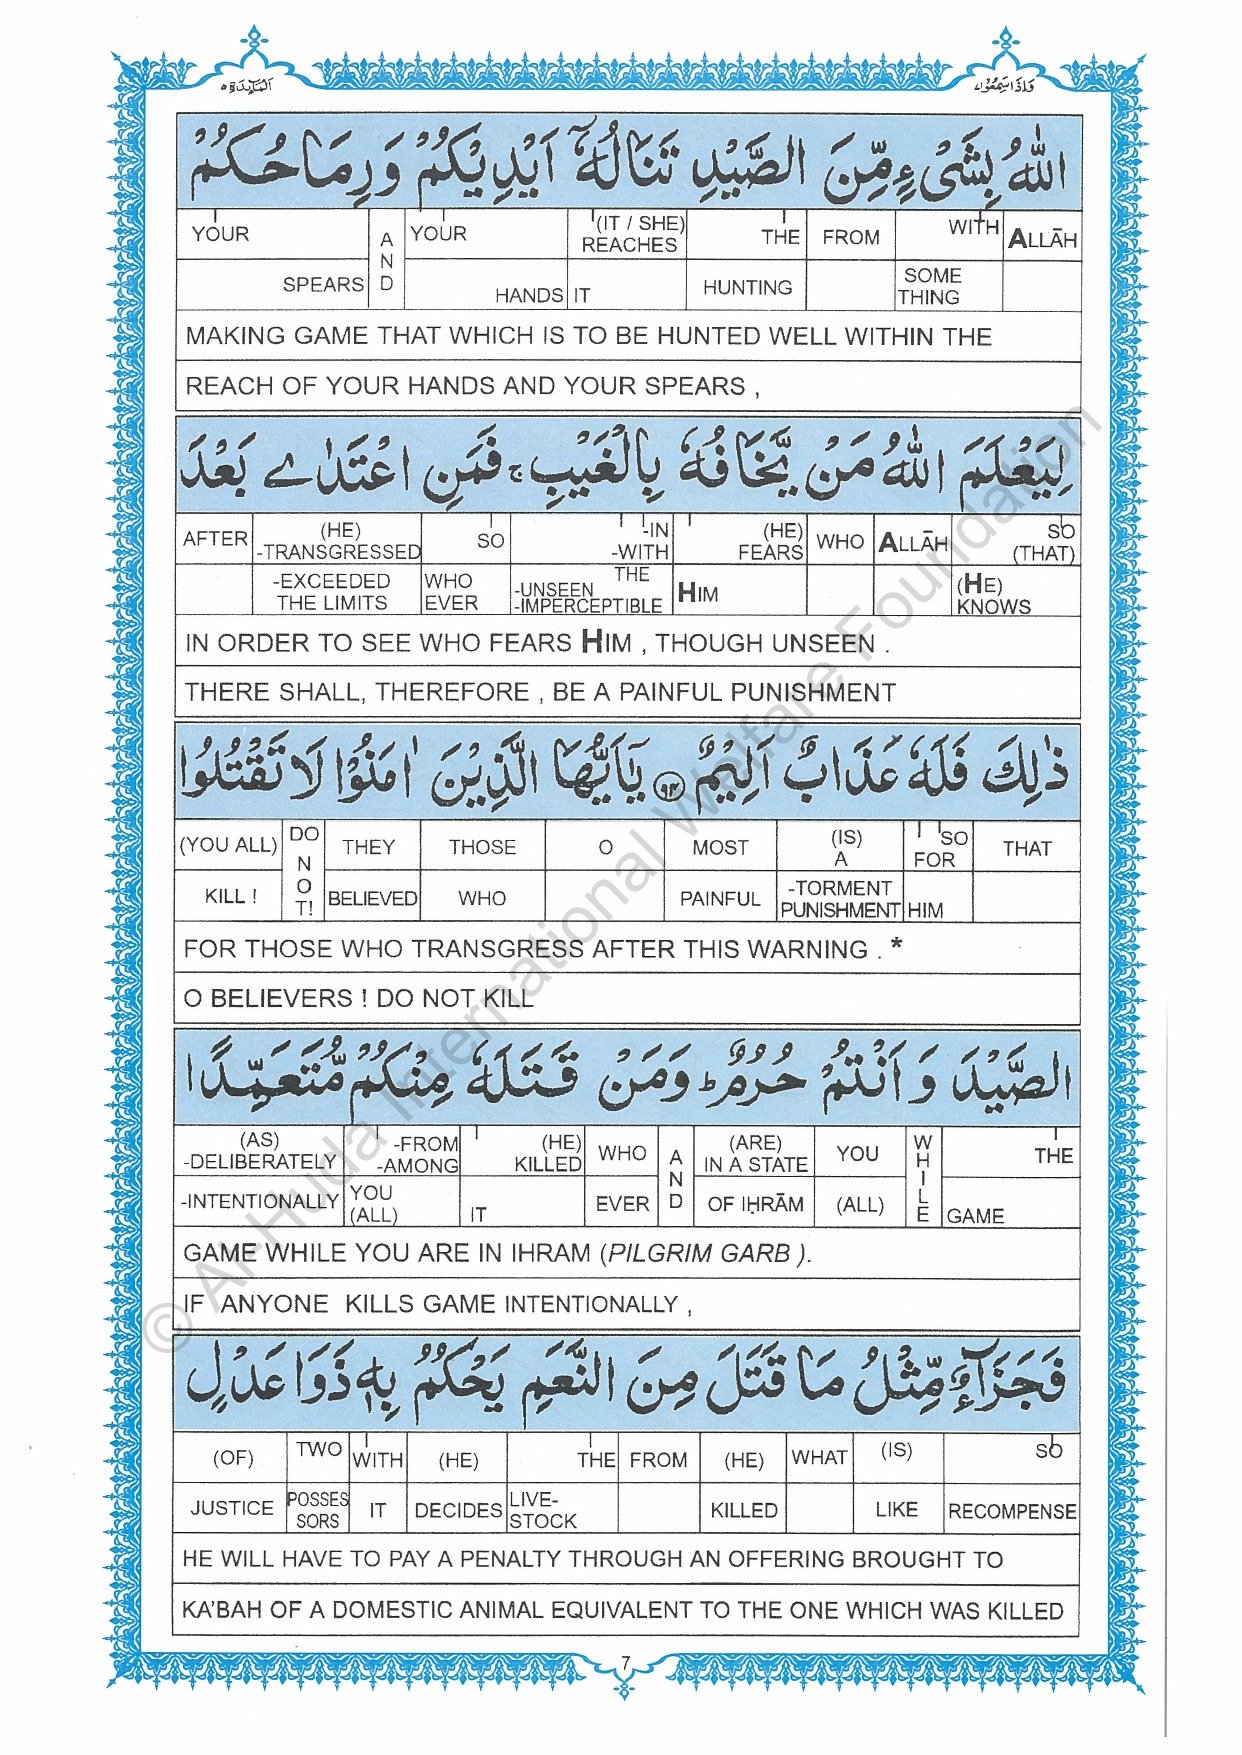 وَاِذَا سَمِعُوْا ٧
اَلْمَآئِدَة ٥
اللّٰهُ بِشَیْءٍ مِّنَ الصَّیْدِ تَنَالُهٗۤ اَیْدِیْكُمْ وَرِمَاحُكُمْ
YOUR AND YOUR (IT / SHE) REACHES THE FROM WITH ALLĀH
SPEARS HANDS IT HUNTING SOME THING
MAKING GAME THAT WHICH IS TO BE HUNTED WELL WITHIN THE
REACH OF YOUR HANDS AND YOUR SPEARS ,
لِیَعْلَمَ اللّٰهُ مَنْ یَّخَافُهٗ بِالْغَیْبِ ۚ فَمَنِ اعْتَدٰے بَعْدَ
AFTER (HE) -TRANSGRESSED SO -IN -WITH (HE) FEARS WHO ALLĀH SO (THAT)
-EXCEEDED THE LIMITS WHO EVER THE -UNSEEN -IMPERCEPTIBLE HIM (HE) KNOWS
IN ORDER TO SEE WHO FEARS HIM , THOUGH UNSEEN .
THERE SHALL, THEREFORE , BE A PAINFUL PUNISHMENT
ذٰلِكَ فَلَهٗ عَذَابٌ اَلِیْمٌ ۝٩٤ یٰۤاَیُّهَا الَّذِیْنَ اٰمَنُوْا لَا تَقْتُلُوا
(YOU ALL) DO NOT! THEY THOSE O MOST (IS) A SO FOR THAT
KILL ! BELIEVED WHO PAINFUL -TORMENT PUNISHMENT HIM
FOR THOSE WHO TRANSGRESS AFTER THIS WARNING . *
O BELIEVERS ! DO NOT KILL
الصَّیْدَ وَ اَنْتُمْ حُرُمٌ ؕ وَمَنْ قَتَلَهٗ مِنْكُمْ مُّتَعَمِّدًا
(AS) -DELIBERATELY -FROM -AMONG (HE) KILLED WHO AND (ARE) IN A STATE YOU WHILE THE
-INTENTIONALLY YOU (ALL) IT EVER OF IḤRĀM (ALL) GAME
GAME WHILE YOU ARE IN IHRAM (PILGRIM GARB ).
IF ANYONE KILLS GAME INTENTIONALLY ,
فَجَزَآءٌ مِّثْلُ مَا قَتَلَ مِنَ النَّعَمِ یَحْكُمُ بِهٖ ذَوَا عَدْلٍ
(OF) TWO WITH (HE) THE FROM (HE) WHAT (IS) SO
JUSTICE POSSES SORS IT DECIDES LIVE- STOCK KILLED LIKE RECOMPENSE
HE WILL HAVE TO PAY A PENALTY THROUGH AN OFFERING BROUGHT TO
KA’BAH OF A DOMESTIC ANIMAL EQUIVALENT TO THE ONE WHICH WAS KILLED
7
© Al-Huda International Welfare Foundation